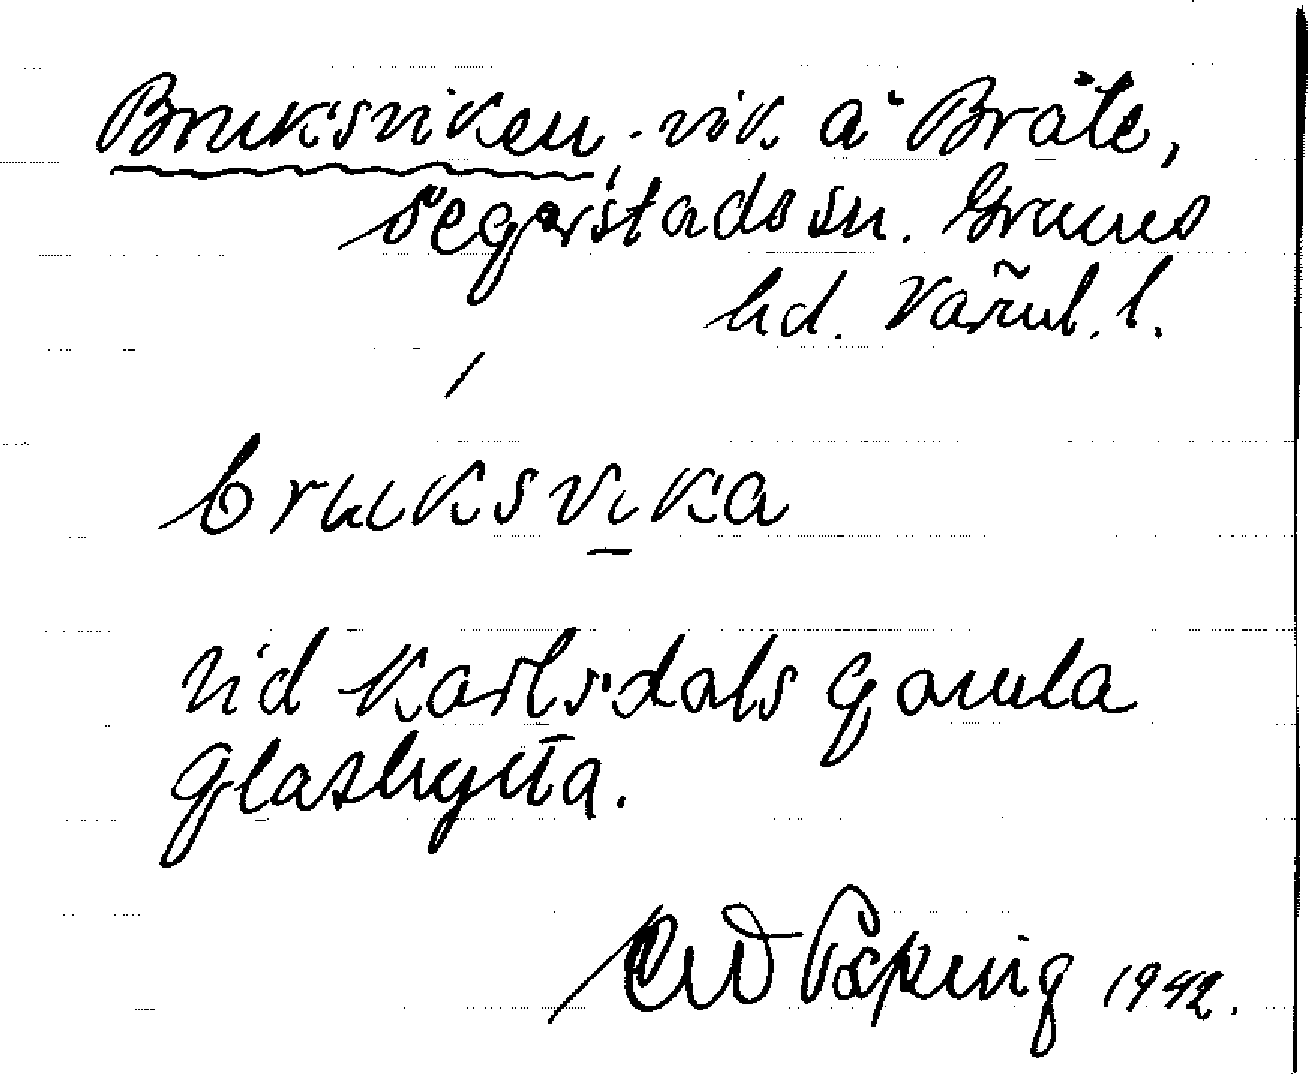 Bruksviken, vik å Bråte,
Segerstads sn. Grums
hd. Värml. l.
bruksvika
vid Karlsdals gamla
glashytta.
1942.